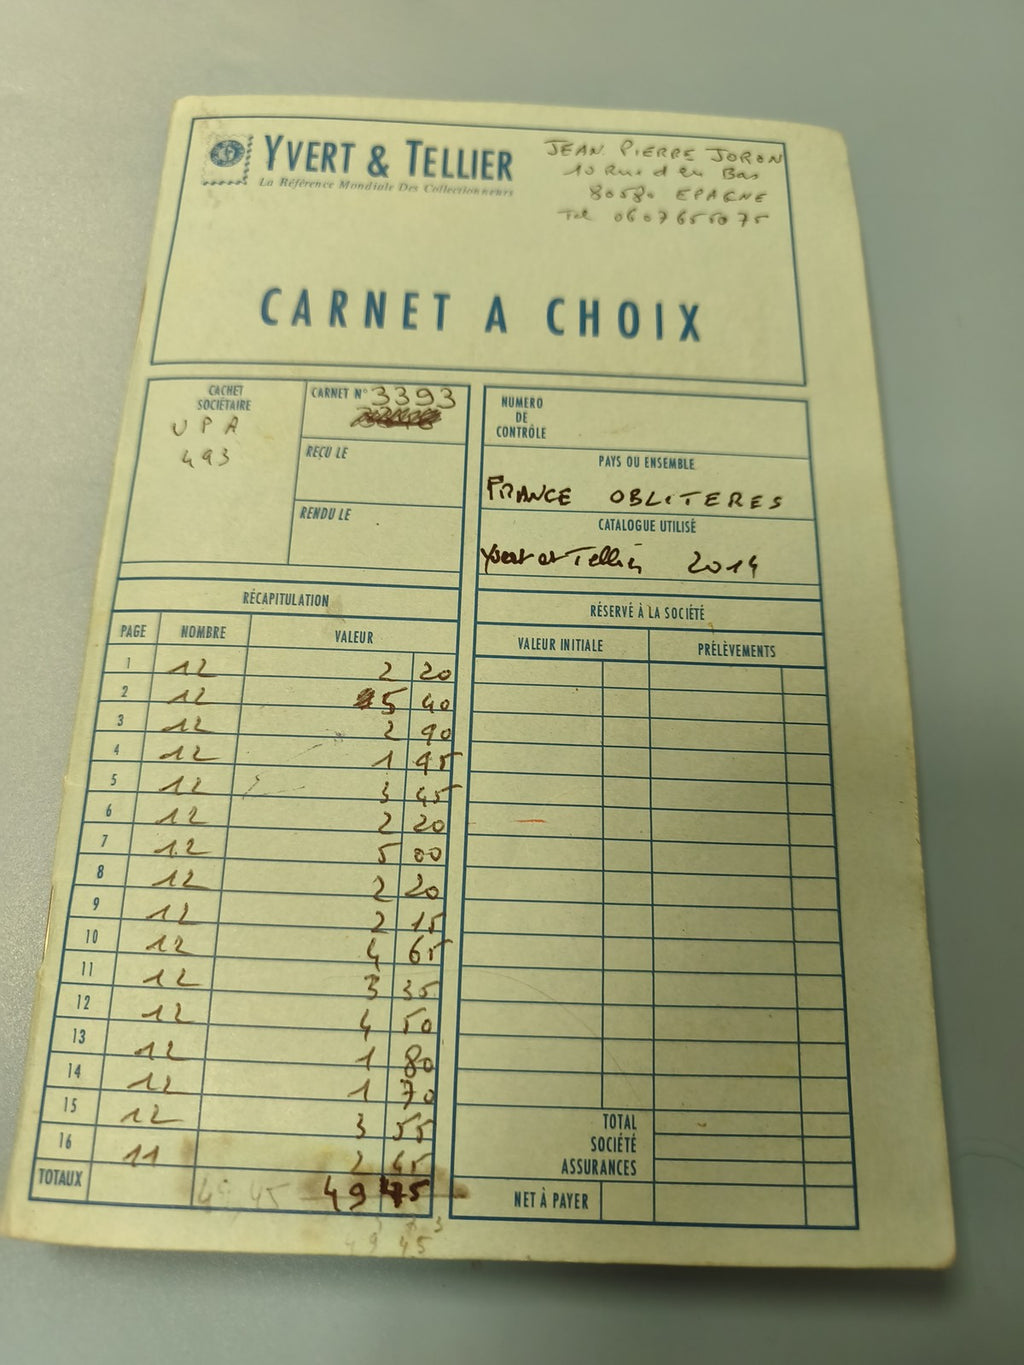 YVERT & TELLIER
La Référence Mondiale Des Collectionneurs
JEAN PIERRE JORON
10 Rue d en Bas
80580 EPAGNE
Tel 0607655075
CARNET A CHOIX
CACHET
SOCIÉTAIRE
UPA
493
CARNET N° 3393
REÇU LE
RENDU LE
NUMERO
DE
CONTRÔLE
PAYS OU ENSEMBLE
FRANCE OBLITERES
CATALOGUE UTILISÉ
Yvert et Tellier 2014
RÉCAPITULATION
PAGE NOMBRE VALEUR
1 12 2 20
2 12 5 40
3 12 2 90
4 12 1 95
5 12 3 45
6 12 2 20
7 12 5 00
8 12 2 20
9 12 2 15
10 12 4 65
11 12 3 35
12 12 4 50
13 12 1 80
14 12 1 70
15 12 3 55
16 11 2 45
TOTAUX 49 45 49 45
49 45
RÉSERVÉ À LA SOCIÉTÉ
VALEUR INITIALE PRÉLÈVEMENTS
TOTAL
SOCIÉTÉ
ASSURANCES
NET À PAYER